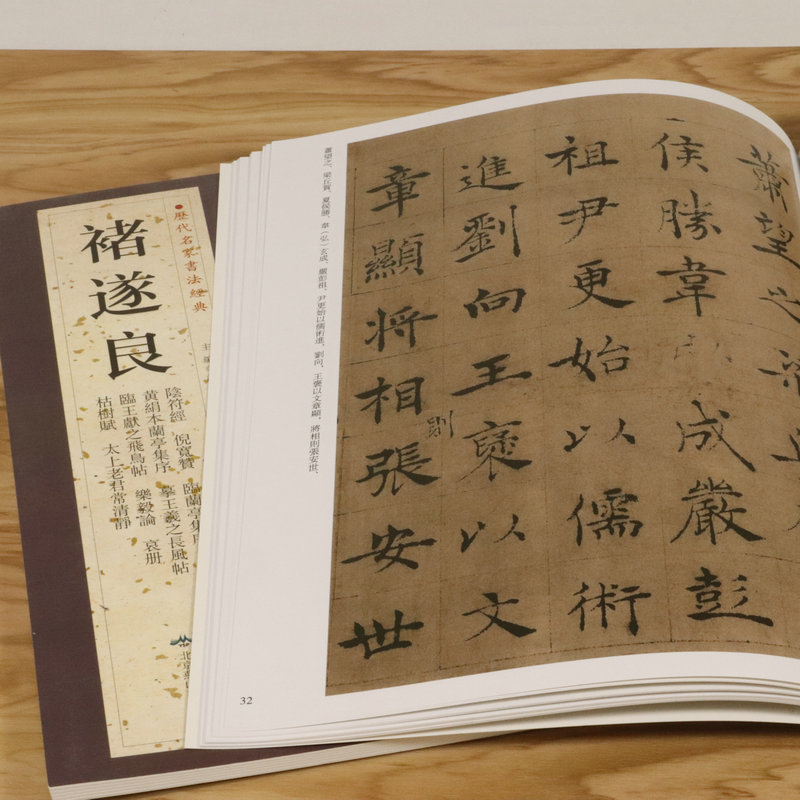 歷代名家書法經典
褚遂良
陰符經 倪寬贊 臨蘭亭集序
黃絹本蘭亭集序 摹王羲之長風帖
臨王獻之飛鳥帖 樂毅論 哀册
枯樹賦 太上老君常清靜
蕭望之、梁丘賀、夏侯勝、韋（弘）玄成、嚴彭祖、尹更始以儒術進，劉向、王褒以文章顯，將相則張安世、
蕭望之
侯勝韋成嚴彭
祖尹更始以儒術
進劉向王褒以文
章顯將相則張安世
32